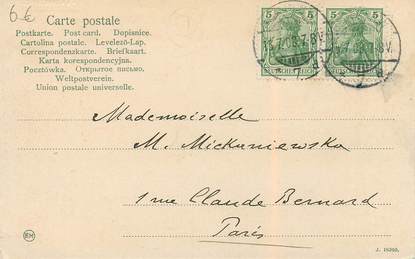 6 €
Carte postale
Postkarte. Post card. Dopisnice.
Cartolina postale. Levelező-Lap.
Correspondenzkarte. Briefkaart.
Karta korespondencyjna.
Pocztówka. Открытое письмо.
Weltpostverein.
Union postale universelle.
5 5
5 5
DEUTSCHES REICH
Mademoiselle
M. Mickuniewska
1 rue Claude Bernard
Paris
EH